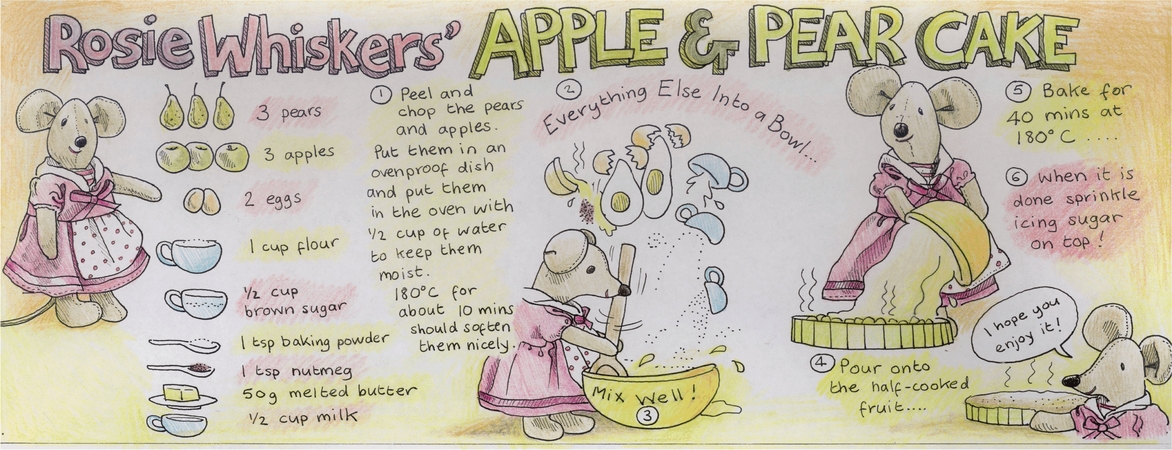 Rosie Whiskers' APPLE & PEAR CAKE
3 pears
3 apples
2 eggs
1 cup flour
1/2 cup
brown sugar
1 tsp baking powder
1 tsp nutmeg
50g melted butter
1/2 cup milk
① Peel and
chop the pears
and apples.
Put them in an
ovenproof dish
and put them
in the oven with
1/2 cup of water
to keep them
moist.
180°C for
about 10 mins
should soften
them nicely.
② Everything Else Into a Bowl...
Mix Well!
③
④ Pour onto
the half-cooked
fruit....
⑤ Bake for
40 mins at
180°C ....
⑥ When it is
done sprinkle
icing sugar
on top!
I hope you
enjoy it!